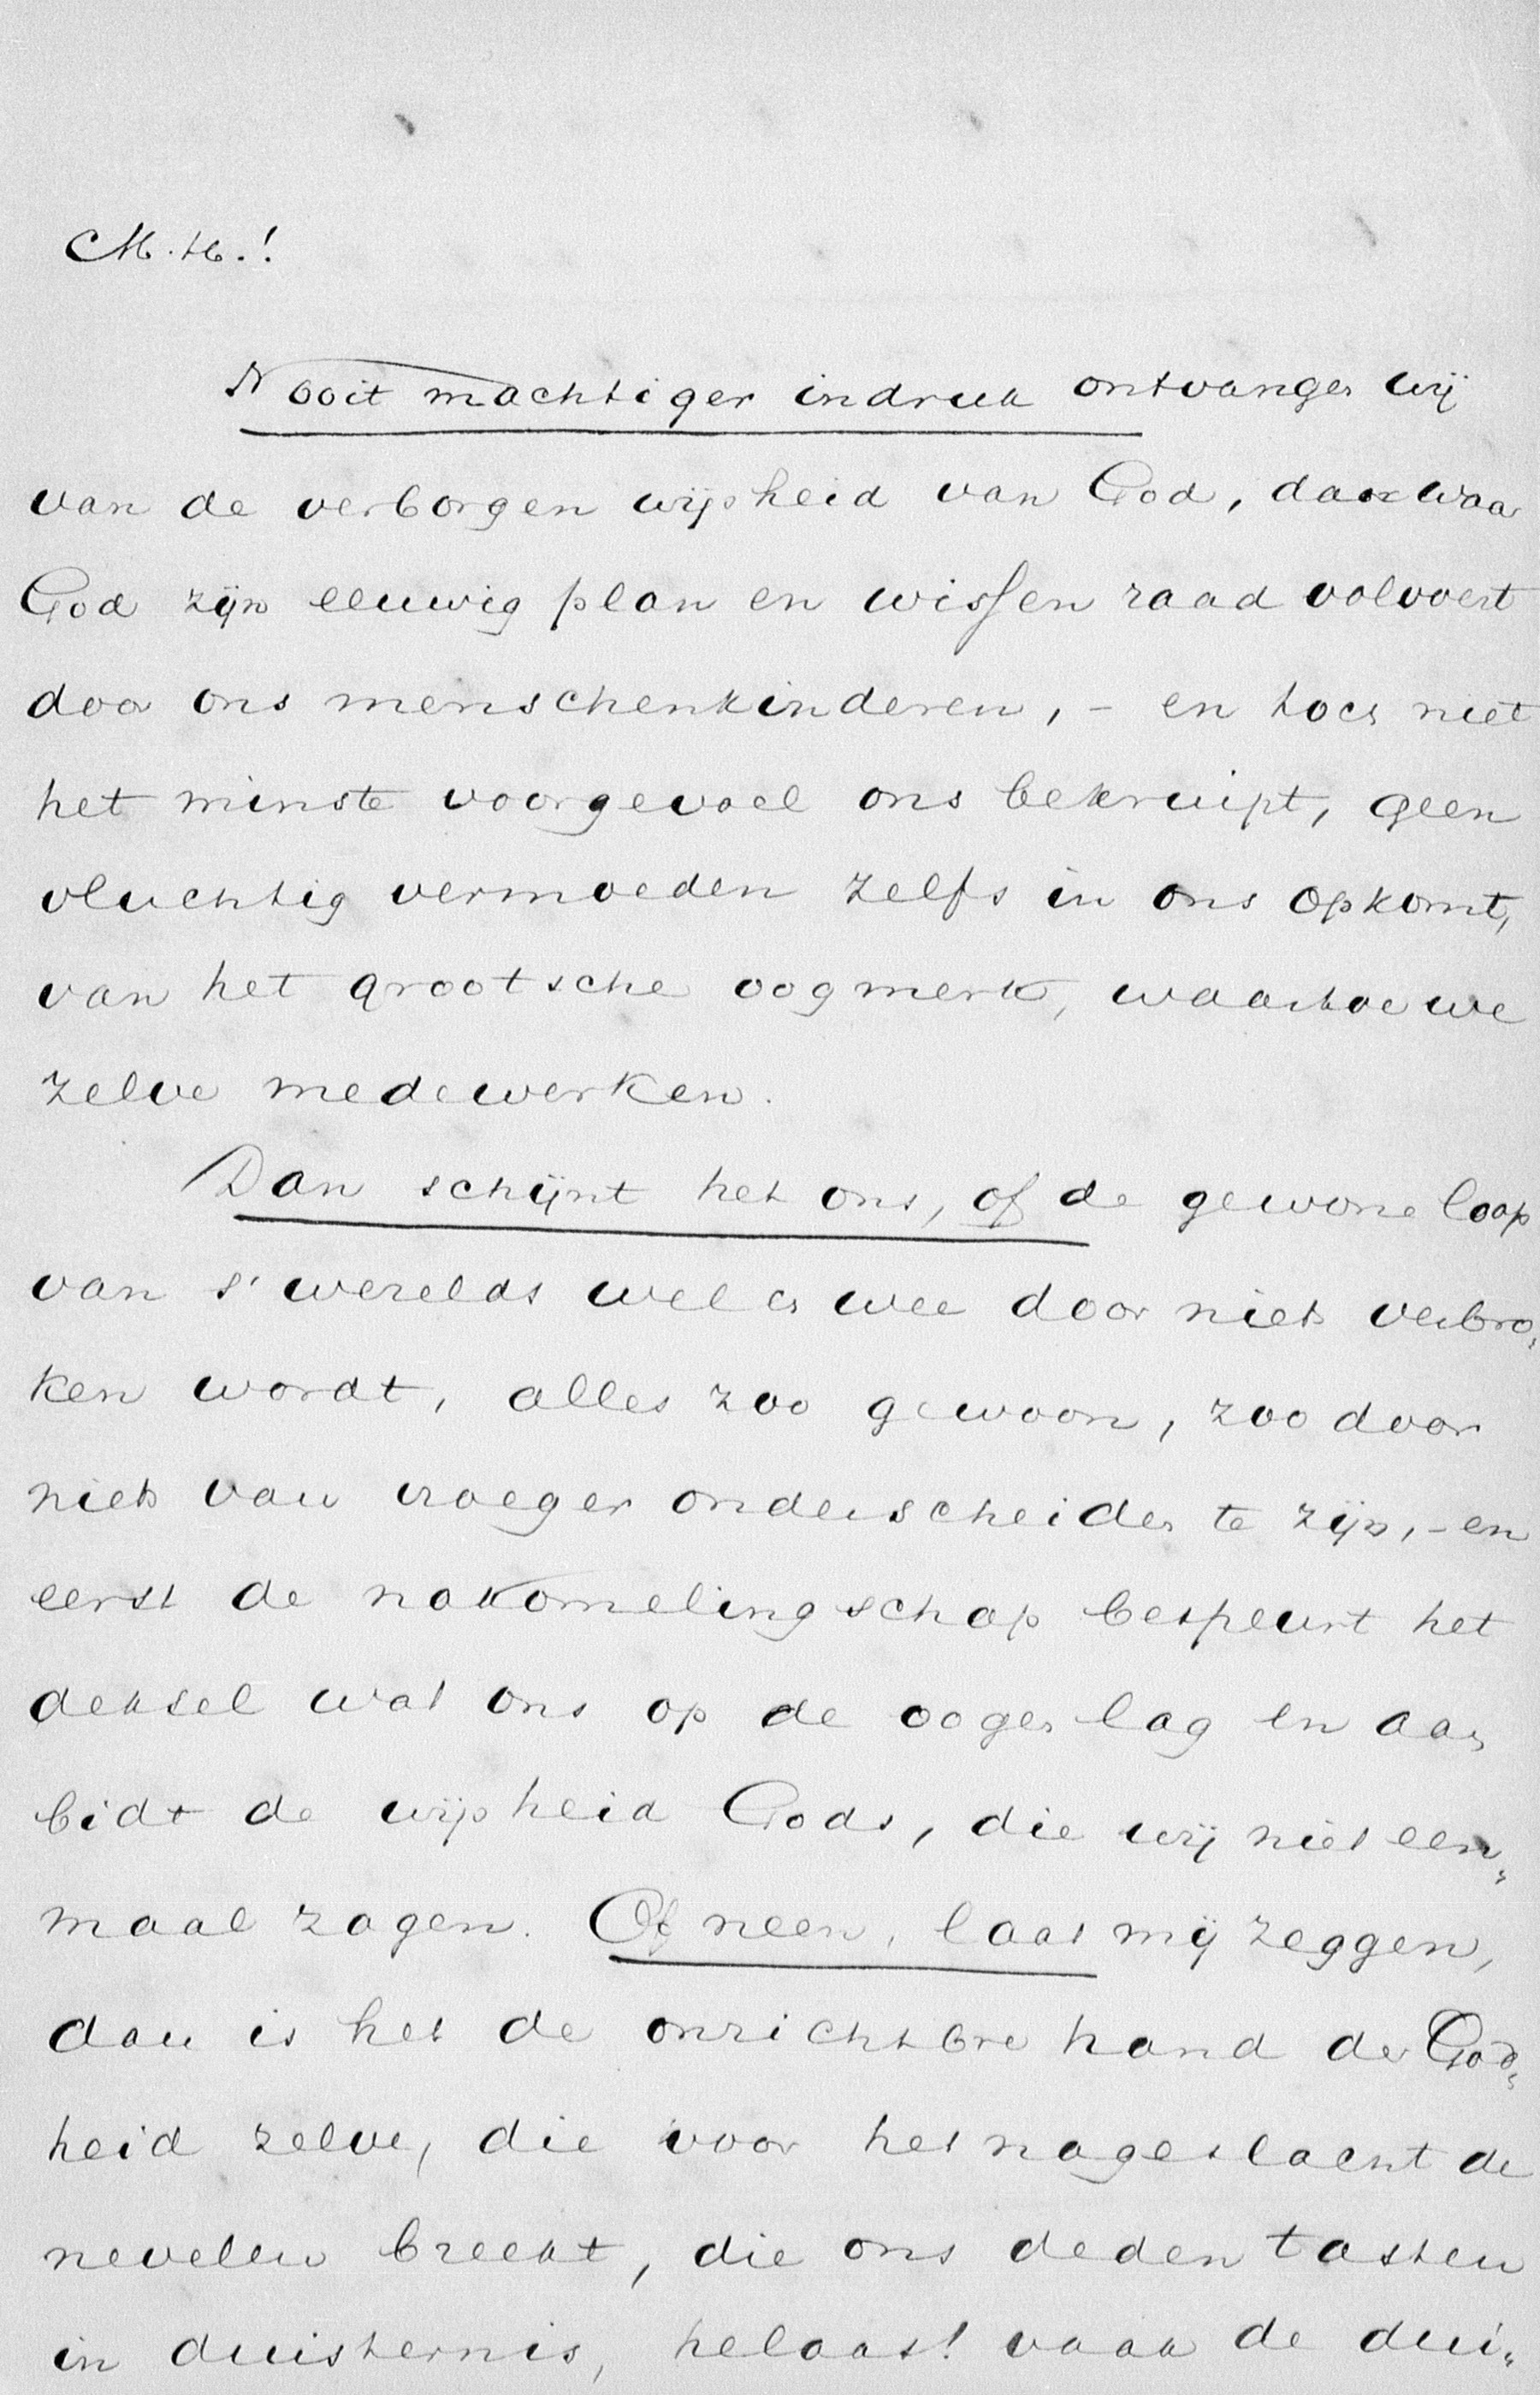 M. H.!
Nooit machtiger indruk ontvangen wij
van de verborgen wijsheid van God, dan waar
God zijn eeuwig plan en wissen raad volvoert
door ons menschenkinderen, - en toch niet
het minste voorgevoel ons bekruipt, geen
vluchtig vermoeden zelfs in ons opkomt,
van het grootsche oogmerk, waartoe we
zelve medewerken.
Dan schijnt het ons, of de gewone loop
van s' werelds wel en wee door niets verbro„
ken wordt, alles zoo gewoon, zoo door
niets van vroeger onderscheiden te zijn, - en
eerst de nakomelingschap bespeurt het
deksel wat ons op de oogen lag en aan
bidt de wijsheid Gods, die wij niet een„
maal zagen. Of neen, laat mij zeggen,
dan is het de onzichtbre hand der God„
heid zelve, die voor het nageslacht de
nevelen breekt, die ons deden tasten
in duisternis, helaas! vaak de dui„